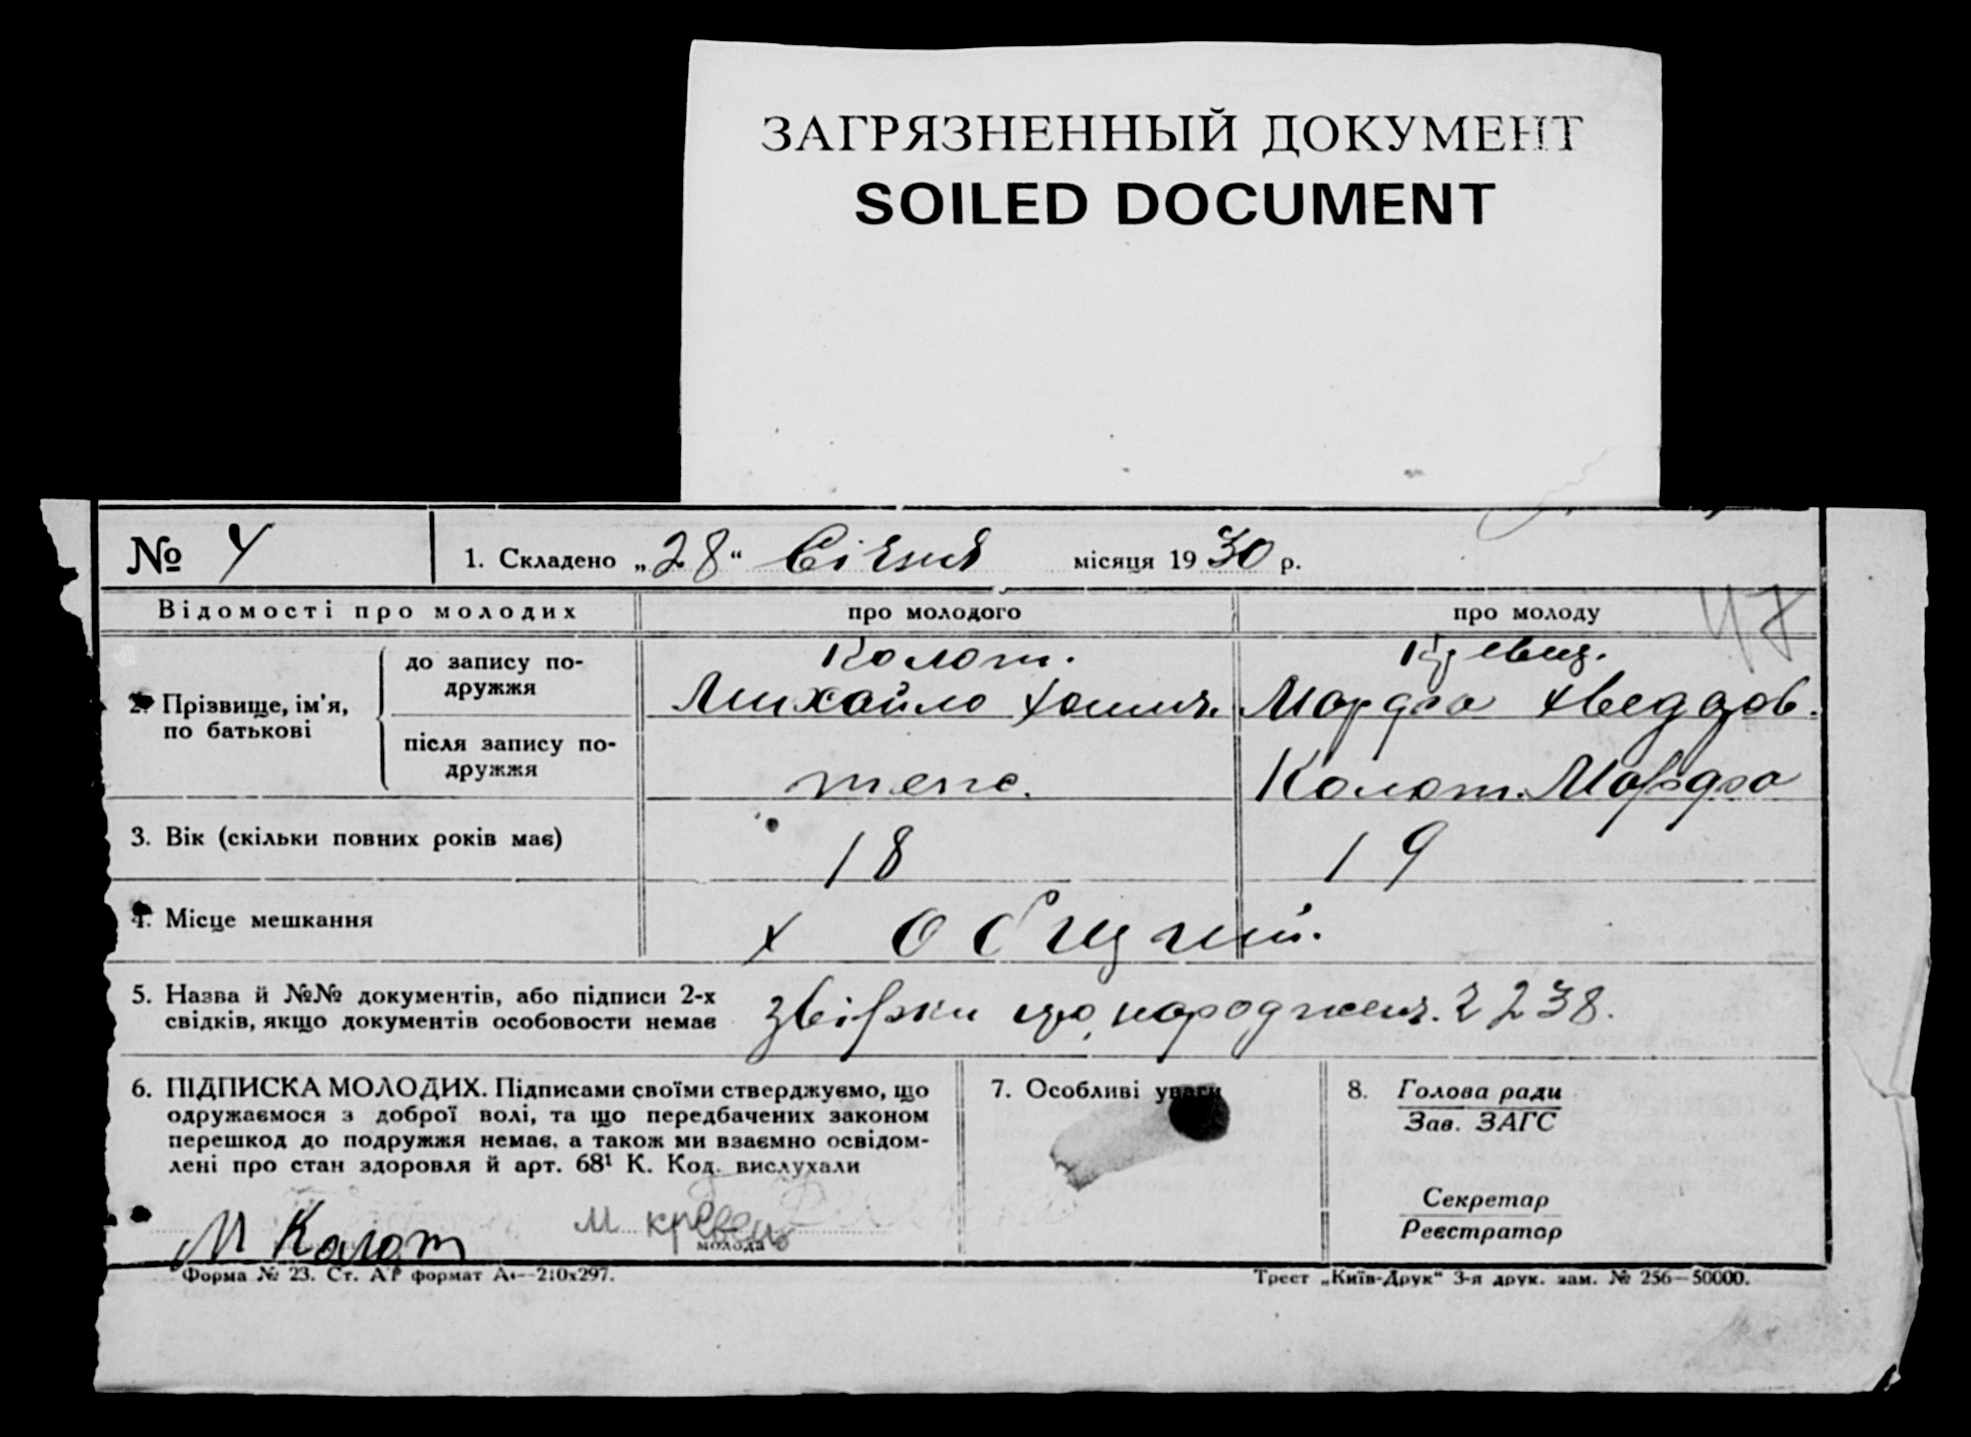 ЗАГРЯЗНЕННЫЙ ДОКУМЕНТ
SOILED DOCUMENT
№ 4 1. Складено „28“ Січня місяця 1930 р.
Відомості про молодих про молодого про молоду 47
2. Прізвище, ім'я, по батькові
до запису по-
дружжя
Колот.
Михайло Хомич.
Мардра Хведдов.
після запису по-
дружжя
теже.
Колот. Мардра
3. Вік (скільки повних років має) 18 19
4. Місце мешкання х
5. Назва й №№ документів, або підписи 2-х
свідків, якщо документів особовости немає
збірки що народжен. 2238.
6. ПІДПИСКА МОЛОДИХ. Підписами своїми стверджуємо, що
одружаємося з доброї волі, та що передбачених законом
перешкод до подружжя немає, а також ми взаємно освідом-
лені про стан здоровля й арт. 68¹ К. Код. вислухали
М Колот М кревець
молода
7. Особливі уваги
8. Голова ради
Зав. ЗАГС
Секретар
Реєстратор
Форма № 23. Ст. АР формат А4—210х297.
Трест „Київ-Друк“ 3-я друк. зам. № 256—50000.